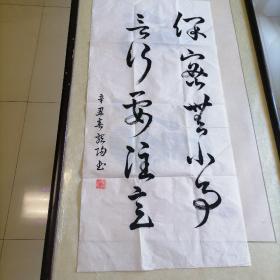 保密无小事
言行要注意
辛丑春 书